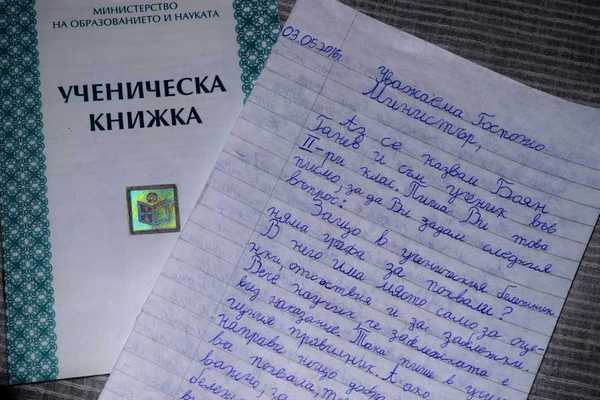 МИНИСТЕРСТВО
НА ОБРАЗОВАНИЕТО И НАУКАТА
УЧЕНИЧЕСКА
КНИЖКА
03.05.2016г.
уважаема Госпожо
Министър,
Аз се назвам Боян
Ганев и съм ученик във
II-ри клас. Пиша Ви това
писмо, за да Ви задам следния
въпрос:
Защо в ученическия бележник
няма графа за похвали?
В него има място само за оце-
нки, отсъствия и за забележки.
Вече научих, че забележката е
вид наказание. Така пише в учили
щния правилник. А ако
направя нещо добро
ва похвала,
важно, за
бележ